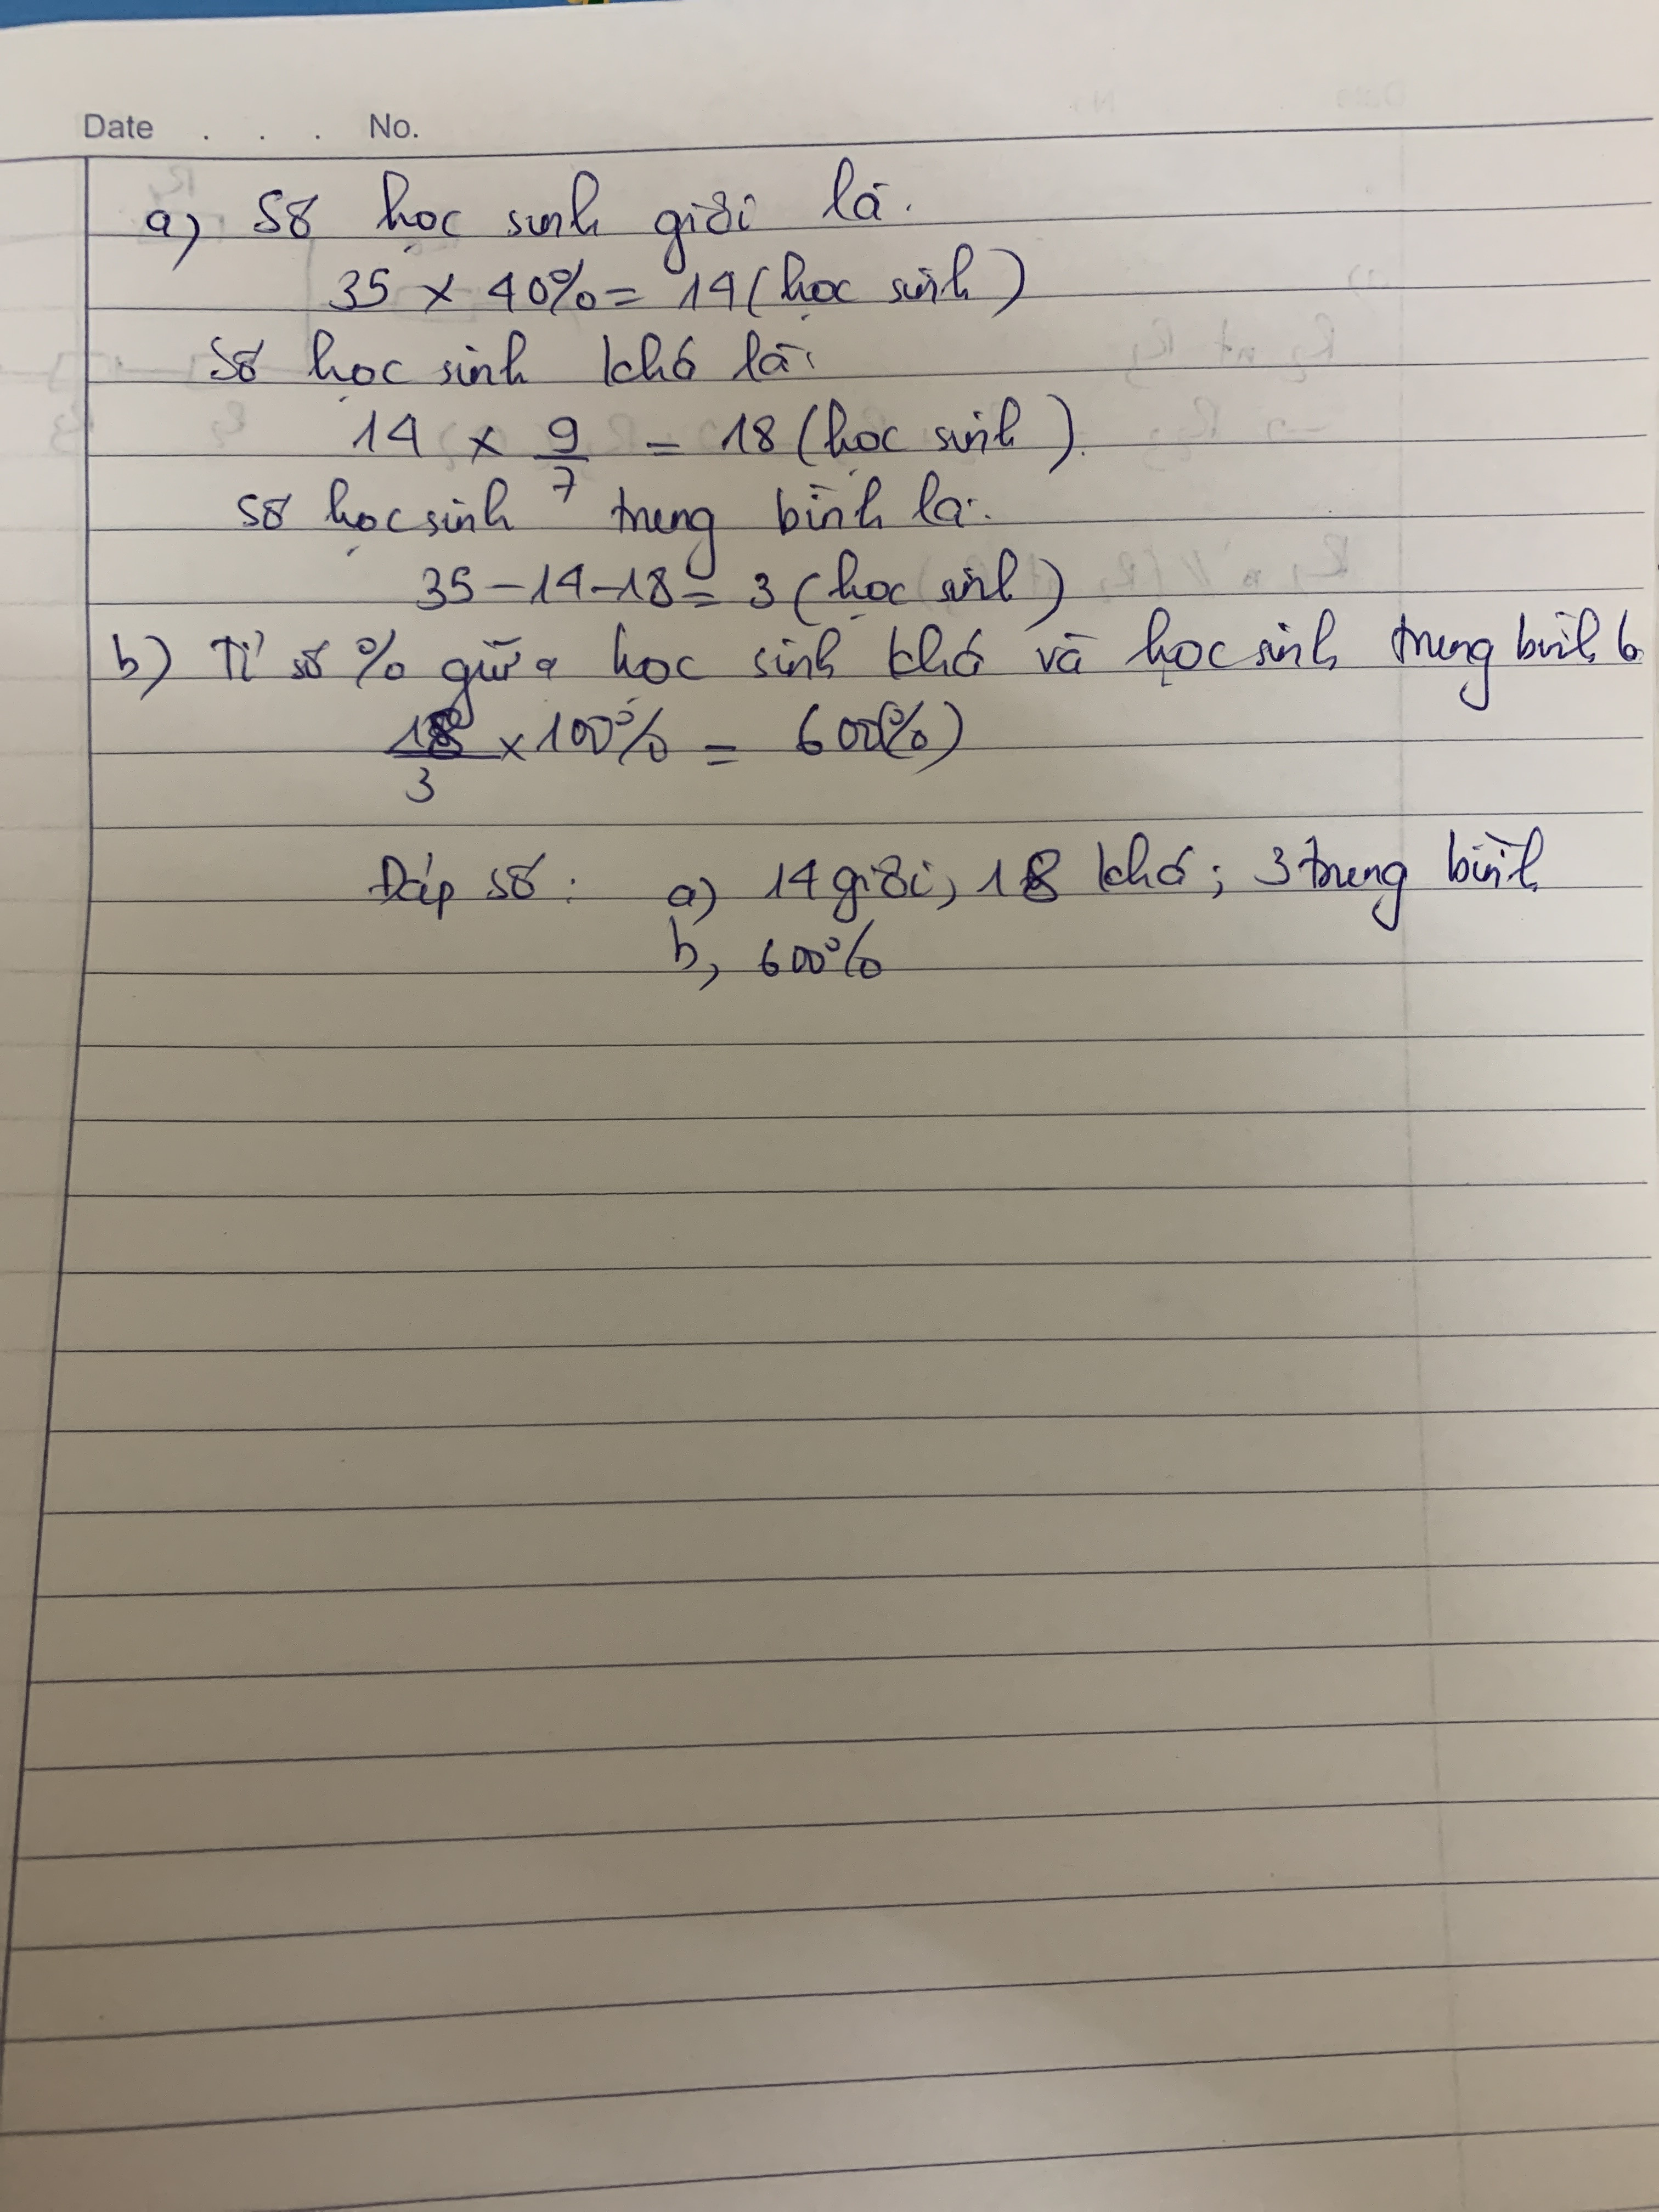 Date . . . No.
a) Số học sinh giỏi là.
35 x 40% = 14 (học sinh)
Số học sinh khá là:
14 x 9/7 = 18 (học sinh).
Số học sinh trung bình là:
35 - 14 - 18 = 3 (học sinh)
b) Tỉ số % giữa học sinh khá và học sinh trung bình là
18/3 x 100% = 600(%)
Đáp số : a) 14 giỏi, 18 khá; 3 trung bình
b, 600%